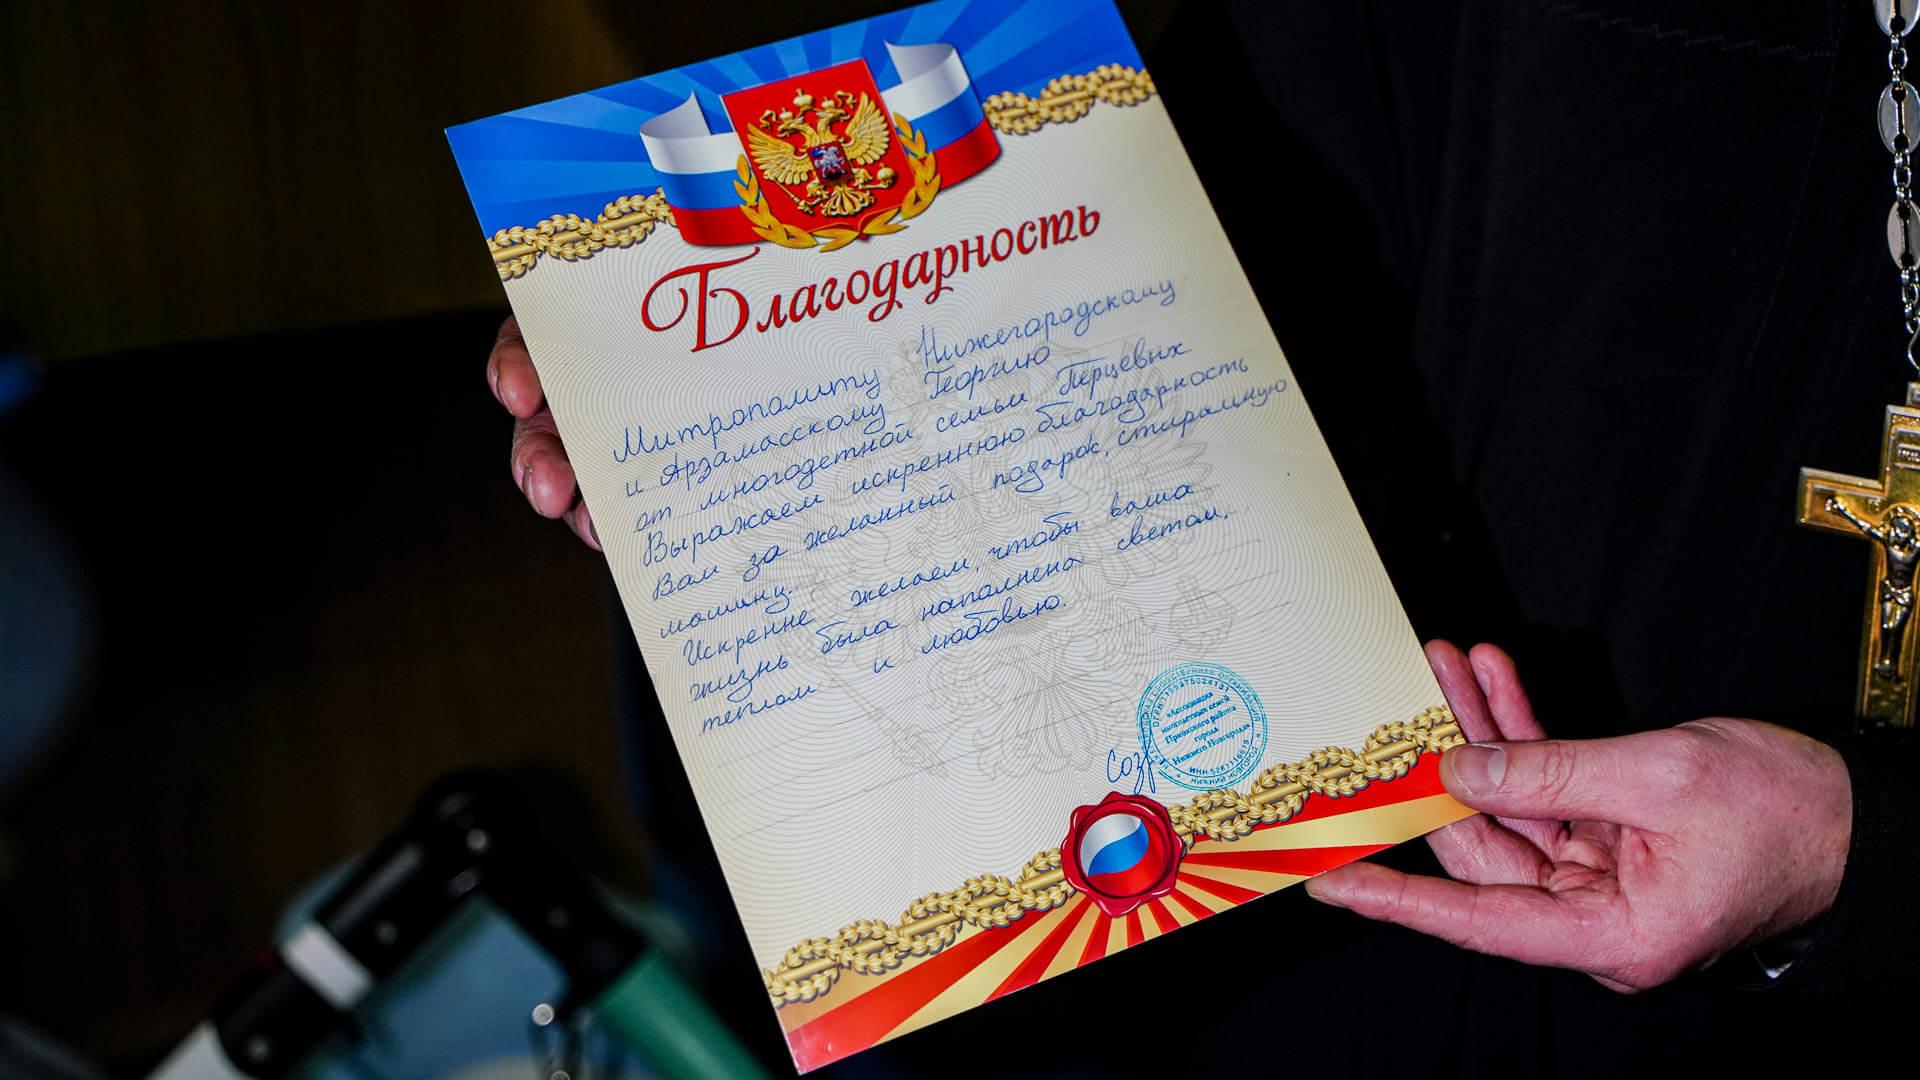 Благодарность
Митрополиту Нижегородскому
и Арзамасскому Георгию
от многодетной семьи Перцевых
Выражаем искреннюю благодарность
Вам за желанный подарок, стиральную
машину.
Искренне желаем, чтобы ваша
жизнь была наполнена светом,
теплом и любовью.
«Ассоциация
многодетных семей
Приокского района
города
Нижнего Новгорода»
НИЖНИЙ НОВГОРОД